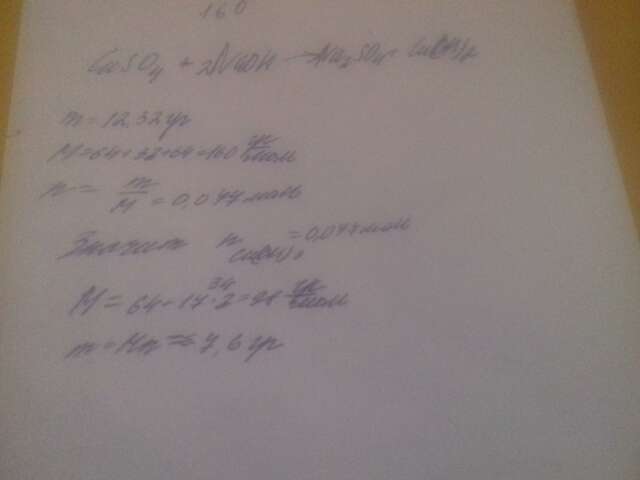 160
CuSO4 + 2NaOH → Na2SO4 + Cu(OH)2
m = 12,32 гр
M = 64+32+64=160 гр/моль
n = m/M = 0,077 моль
Значит n Cu(OH)2 = 0,077 моль
M = 64+17·2=98 гр/моль
34
m = Mn = 7,6 гр